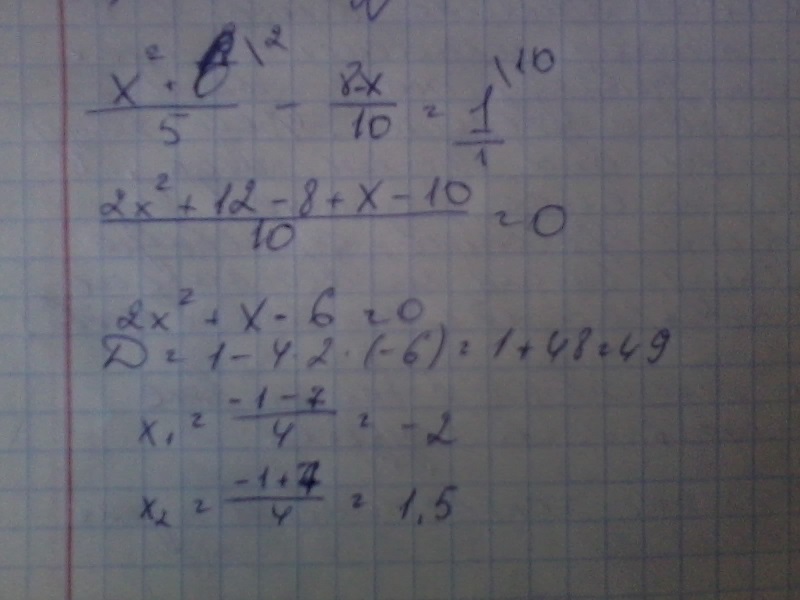 (x² + 6)/5 \2 - (8-x)/10 = 1/1 \10
(2x² + 12 - 8 + x - 10)/10 = 0
2x² + x - 6 = 0
D = 1 - 4·2·(-6) = 1 + 48 = 49
x₁ = (-1-7)/4 = -2
x₂ = (-1+7)/4 = 1,5